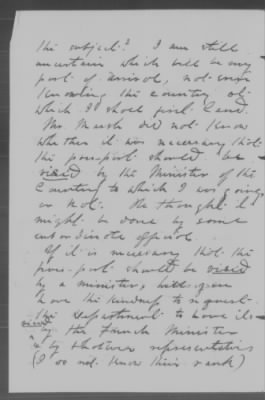 the subject? I am still
uncertain which will be my
port of arrival, not even
knowing the country at
which I shall first land.
Mr. Marsh did not know
whether it was necessary that
the passport should be
viséd by the Minister of the
Country to which I was going,
or not. He thought it
might be done by some
subordinate official.
If it is necessary that the
pass-port should be viséd
by a minister, will you
have the kindness to request
the Department to have it
viséd by the French Minister
& by whatever representative
(I do not know their rank)